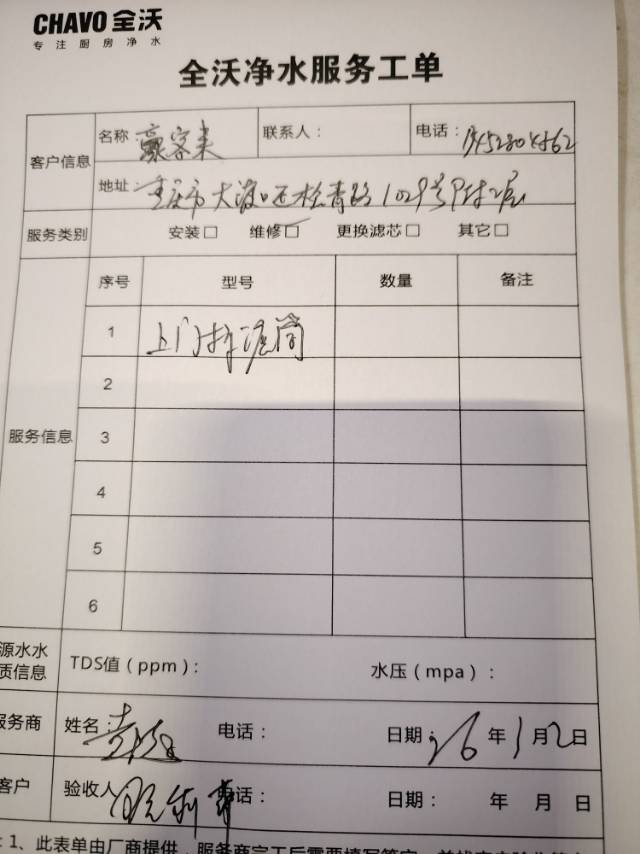 CHAVO 全沃
专注厨房净水
全沃净水服务工单
客户信息
名称 豪客来
联系人：
电话：
地址： 重庆市大渡口区松青路1029号
服务类别
安装□ 维修□ 更换滤芯□ 其它□
服务信息
序号 型号 数量 备注
1 上门拆滤筒
2
3
4
5
6
源水水
质信息
TDS值（ppm）： 水压（mpa）：
服务商 姓名： 电话： 日期：26年1月2日
客户 验收人 电话： 日期： 年 月 日
：1、此表单由厂商提供，服务商完工后需要填写签字